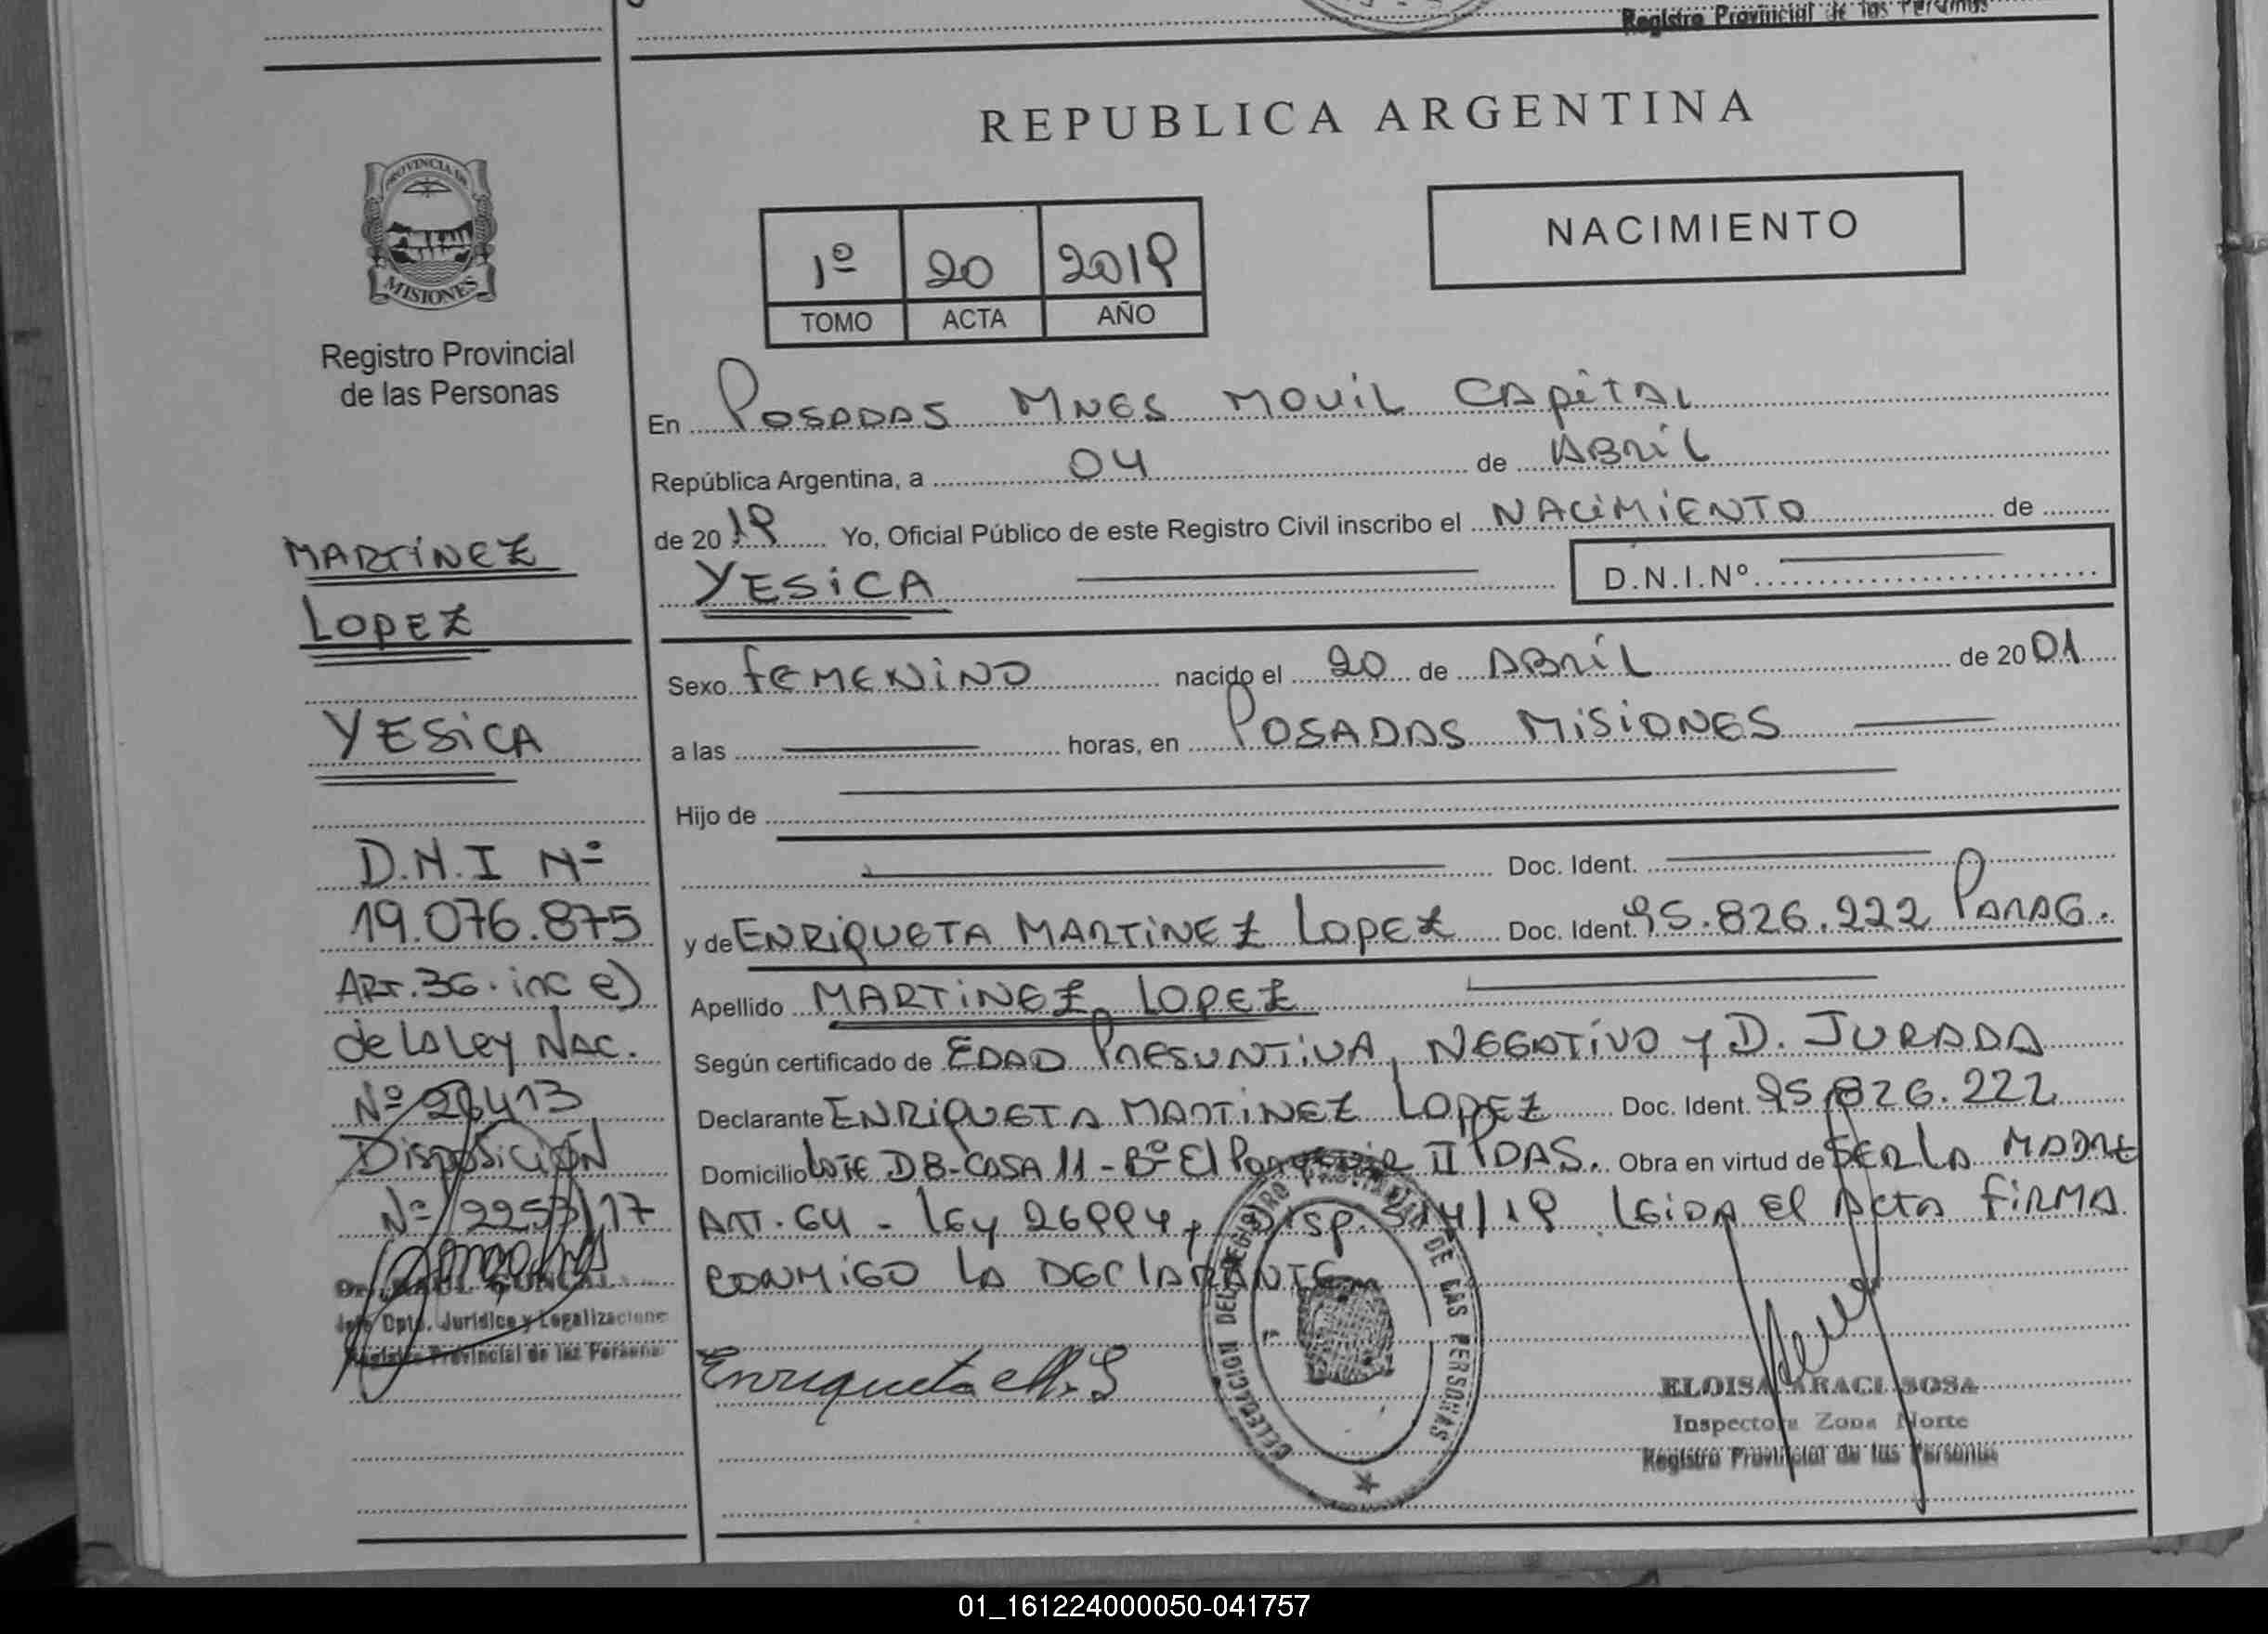 Registro Provincial de las Personas
REPUBLICA ARGENTINA
PROVINCIA DE
MISIONES
Registro Provincial
de las Personas
1º 20 2019
TOMO ACTA AÑO
NACIMIENTO
En POSADAS MNES MOVIL CAPITAL
República Argentina, a 04 de ABRIL
de 2019 Yo, Oficial Público de este Registro Civil inscribo el NACIMIENTO de
YESICA D.N.I.Nº
Sexo FEMENINO nacido el 20 de ABRIL de 2001
a las horas, en POSADAS MISIONES
Hijo de
Doc. Ident.
y de ENRIQUETA MARTINEZ LOPEZ Doc. Ident. 95.826.222 PARAG.
Apellido MARTINEZ LOPEZ
Según certificado de EDAD PRESUNTIVA, NEGATIVO Y D. JURADA
Declarante ENRIQUETA MARTINEZ LOPEZ Doc. Ident. 95.826.222
Domicilio LOTE DB-CASA 11-Bº El II PDAS. Obra en virtud de SER LA MADRE
ART. 64 - Ley 26994, Disp. /19 LEIDA El ACTA FIRMA
CONMIGO LA DECLARANTE
Enriqueta M. L
DELEGACION DEL REGISTRO PROVINCIAL DE LAS PERSONAS
ELOISA ARACI SOSA
Inspectora Zona Norte
Registro Provincial de las Personas
MARTINEZ
LOPEZ
YESICA
D.N.I Nº
19.076.875
ART. 36. inc e)
de la Ley NAC.
Nº 26413
DISPOSICIÓN
Nº 2253/17
Dr. RAUL
Jefe Dpto. Jurídico y Legalizacione
Registro Provincial de las Persona
01_161224000050-041757